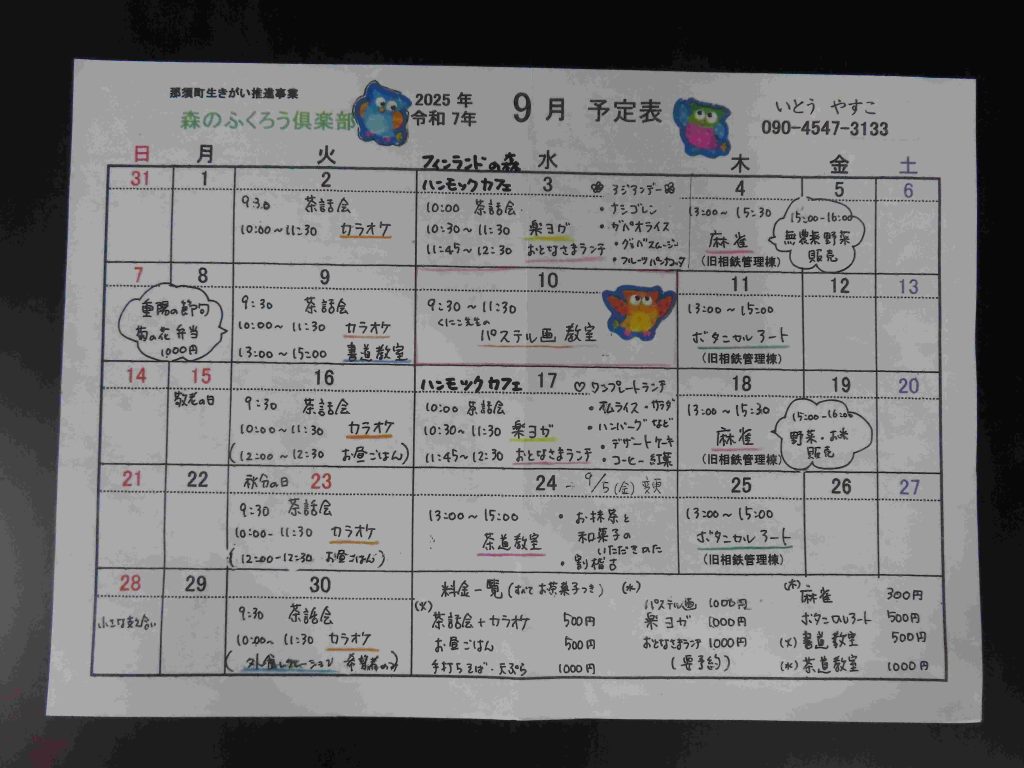 那須町生きがい推進事業
森のふくろう倶楽部
2025 年
令和 7年
9月 予定表
いとう やすこ
090-4547-3133
日 月 火 水 木 金 土
フィンランドの森
31 1 2 3 4 5 6
9:30 茶話会
10:00～11:30 カラオケ
ハンモックカフェ
10:00 茶話会
10:30～11:30 楽ヨガ
11:45～12:30 おとなさまランチ
・ナシゴレン
・ガパオライス
13:00～15:30
麻雀
(旧相鉄管理棟)
15:00-16:00
無農薬野菜
販売
7 8 9 10 11 12 13
重陽の節句
菊の花弁当
1000円
9:30 茶話会
10:00～11:30 カラオケ
13:00～15:00 書道教室
9:30～11:30
くにこ先生の
パステル画 教室
13:00～15:00
ボタニカルアート
(旧相鉄管理棟)
14 15 16 17 18 19 20
敬老の日
9:30 茶話会
10:00～11:30 カラオケ
(12:00～12:30 お昼ごはん)
ハンモックカフェ
♡ワンプレートランチ
10:00 茶話会
10:30～11:30 楽ヨガ
11:45～12:30 おとなさまランチ
・オムライス・サラダ
・ハンバーグなど
・デザートケーキ
・コーヒー紅茶
13:00～15:30
麻雀
(旧相鉄管理棟)
15:00-16:00
野菜・お米
販売
21 22 秋分の日 23 24 → 9/5(金)変更 25 26 27
9:30 茶話会
10:00-11:30 カラオケ
(12:00-12:30 お昼ごはん)
13:00～15:00
茶道教室
・お抹茶と
和菓子の
いただきかた
・割稽古
13:00～15:00
ボタニカルアート
(旧相鉄管理棟)
28 29 30
9:30 茶話会
10:00～11:30 カラオケ
(外食レクレーション 希望者のみ)
料金一覧(すべてお茶菓子つき)
(火)
茶話会+カラオケ 500円
お昼ごはん 500円
手打ちそば・天ぷら 1000円
(水)
パステル画 1000円
楽ヨガ 1000円
おとなさまランチ 1000円
(要予約)
(木)
麻雀 300円
ボタニカルアート 500円
(火)書道教室 500円
(水)茶道教室 1000円